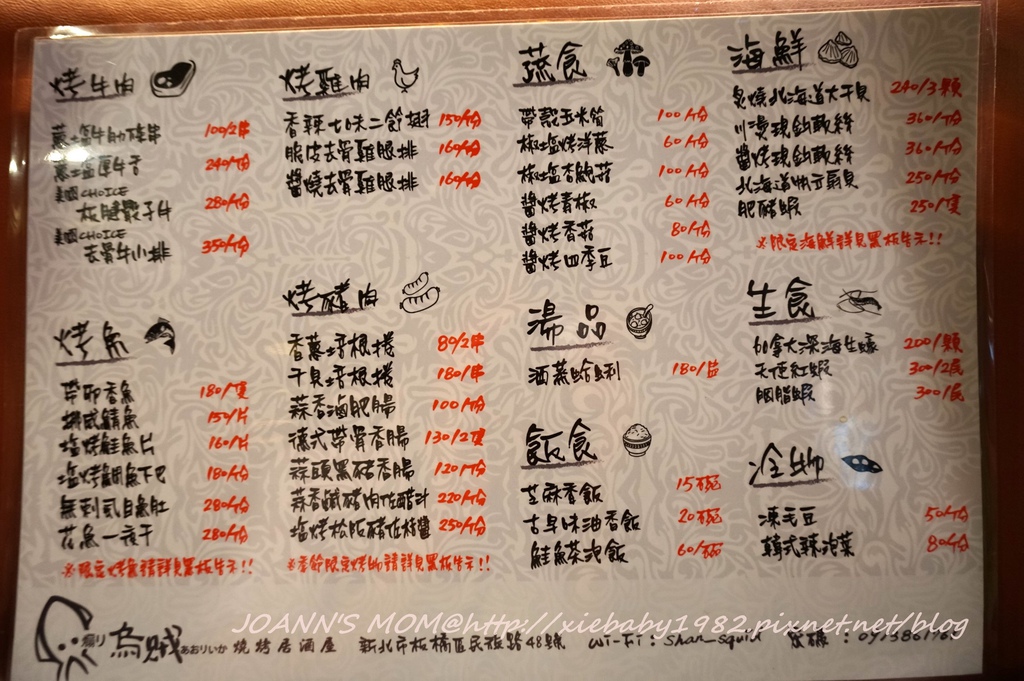 烤牛肉
蔥塩牛肋條串 100/2串
蔥塩厚牛舌 240/份
美國CHOICE
板腱骰子牛 280/份
美國CHOICE
去骨牛小排 350/份
烤魚
帶卵香魚 180/隻
挪威鯖魚 150/片
塩烤鮭魚片 160/片
塩烤鯛魚下巴 180/份
無刺虱目魚肚 280/份
花魚一夜干 280/份
※限定烤魚請詳見黑板告示!!
烤雞肉
香辣七味二節翅 150/份
脆皮去骨雞腿排 160/份
醬燒去骨雞腿排 160/份
烤豬肉
香蔥培根捲 80/2串
干貝培根捲 180/串
蒜香滷肥腸 100/份
德式帶骨香腸 130/2隻
蒜頭黑豬香腸 120/份
蒜香鹹豬肉佐醋汁 220/份
塩烤松阪豬佐特醬 250/份
※季節限定烤物請詳見黑板告示!!
蔬食
帶殼玉米筍 100/份
椒塩烤洋蔥 60/份
椒塩杏鮑菇 100/份
醬烤青椒 60/份
醬烤香菇 80/份
醬烤四季豆 100/份
湯品
酒蒸蛤蜊 180/盅
飯食
芝麻香飯 15/碗
古早味油香飯 20/碗
鮭魚茶泡飯 60/碗
海鮮
炙燒北海道大干貝 240/3顆
川燙現釣軟絲 360/份
醬烤現釣軟絲 360/份
北海道帆立扇貝 250/份
肥豬蝦 250/隻
※限定海鮮詳見黑板告示!!
生食
加拿大深海生蠔 200/顆
天使紅蝦 300/2尾
胭脂蝦 300/尾
冷物
凍毛豆 50/份
韓式辣泡菜 80/份
煽り烏賊 あおりいか 燒烤居酒屋 新北市板橋區民族路48號 Wi-Fi : Shan_squid 密碼 :
JOANN'S MOM@http://xiebaby1982.pixnet.net/blog